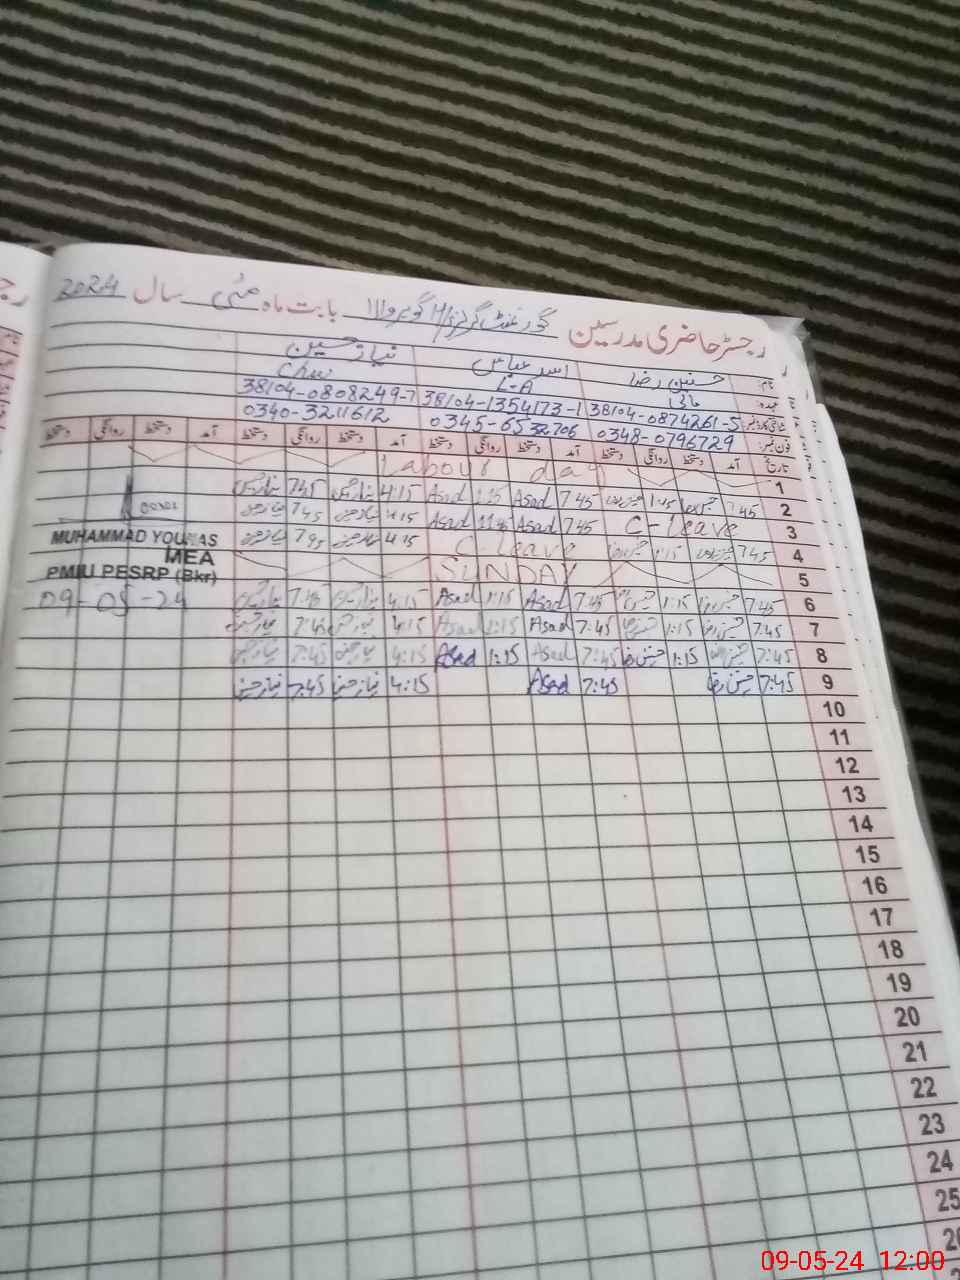 رجسٹر حاضری مدرسین گورنمنٹ گرلز H/S گوہروالا بابت ماہ مئی سال 2024
نام: حسنین رضا اسد عباس نیاز حسین
عہدہ: مالی L-A Chw
شناختی کارڈ نمبر: 38104-0874261-5 38104-1354173-1 38104-0808249-7
فون نمبر: 0348-0796729 0345-6532706 0340-3211612
تاریخ آمد دستخط روانگی دستخط آمد دستخط روانگی دستخط آمد دستخط روانگی دستخط آمد دستخط روانگی دستخط
1 Labour day
2 7:45 1:15 7:45 Asad 1:15 Asad 4:15 7:45
3 C-leave 7:45 Asad Asad 4:15 7:45
4 7:45 1:15 C-leave 4:15 7:45
5 SUNDAY
6 7:45 1:15 7:45 Asad 1:15 Asad 4:15 7:45
7 7:45 1:15 7:45 Asad 1:15 Asad 4:15 7:45
8 7:45 حسنین رضا 1:15 حسنین رضا 7:45 Asad 1:15 Asad 4:15 نیاز حسین 7:45 نیاز حسین
9 7:45 حسنین رضا 7:45 Asad 4:15 نیاز حسین 7:45 نیاز حسین
10
11
12
13
14
15
16
17
18
19
20
21
22
23
24
25
MUHAMMAD YOUNAS
MEA
PMIU PESRP (Bkr)
09-05-24
09-05-24 12:00